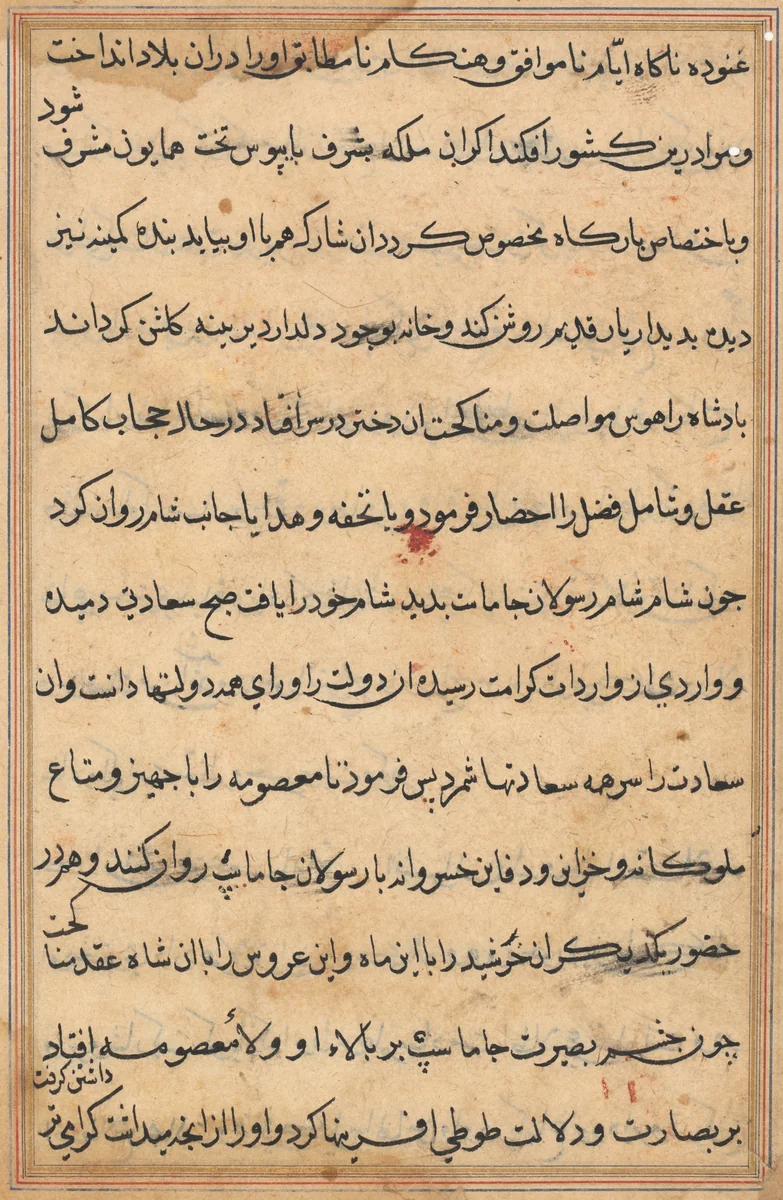 غنوده ناکاه ایّام ناموافق و هنکام نامطابق او را در ان بلاد انداخت
و مرا درین کشور افکند اکر ان ملکه بشرف پایبوس تخت همایون مشرف شود
و باختصاص بارکاه مخصوص کردد ان شارک هم با او بیاید بنده کمینه نیز
دیده بدیدار یار قدیم روشن کند و خانه بوجود دلدار دیرینه کلشن کرداند
بادشاه را هوس مواصلت و مناکحت ان دختر در سر افتاد در حال حجاب کامل
عقل و شامل فضل را احضار فرمود و با تحفه و هدایا جانب شام روان کرد
جون شام شام رسولان جاماست بدید شام خود را یافت صبح سعادتی دمیده
و واردي از واردات کرامت رسیده ان دولت را وراي همه دولتها دانست و ان
سعادت را سرهمه سعادتها شمرد پس فرمود تا معصومه را با جهیز و متاع
ملوکانه و خزاین و دفاین خسروانه با رسولان جاماسپ روان کنند و هم در
حضور یکدیکر ان خورشید را با این ماه و این عروس را با ان شاه عقد مناکحت
چون جشم بصیرت جاماسپ بر بالاء او و ولاء معصومه افتاد
بر بصارت و دلالت طوطي افرینها کرد و او را از انجه میداشت کرامي تر داشتن کرفت